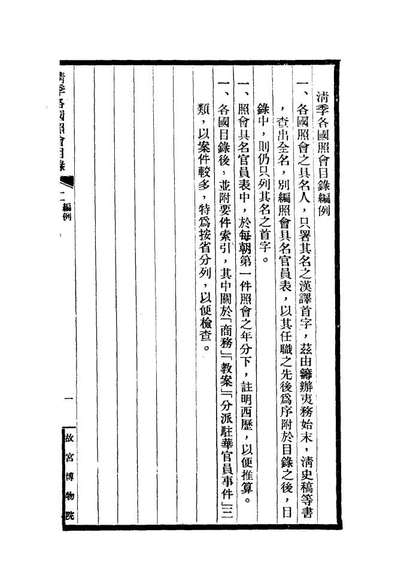 清季各國照會目錄編例
一、各國照會之具名人，只署其名之漢譯首字，茲由籌辦夷務始末，清史稿等書
，查出全名，別編照會具名官員表，以其任職之先後爲序附於目錄之後，目
錄中，則仍只列其名之首字。
一、照會具名官員表中，於每朝第一件照會之年分下，註明西歷，以便推算。
一、各國目錄後，並附要件索引，其中關於「商務」「教案」「分派駐華官員事件」三
類，以案件較多，特爲按省分列，以便檢查。
清季各國照會目錄
編例
一
故宮博物院